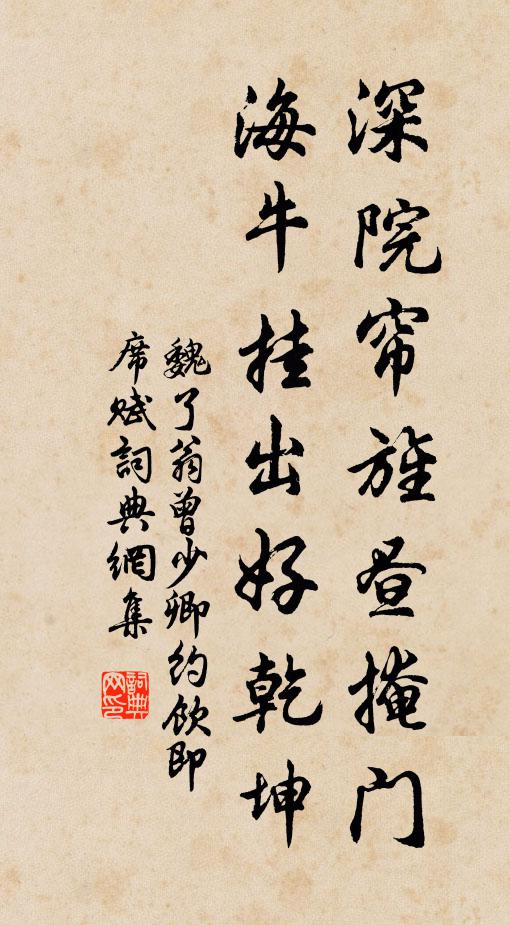 深院帘旌昼掩門
海牛挂出好乾坤
魏了翁曾少卿約飲即
席賦詞典網集
詞典網印